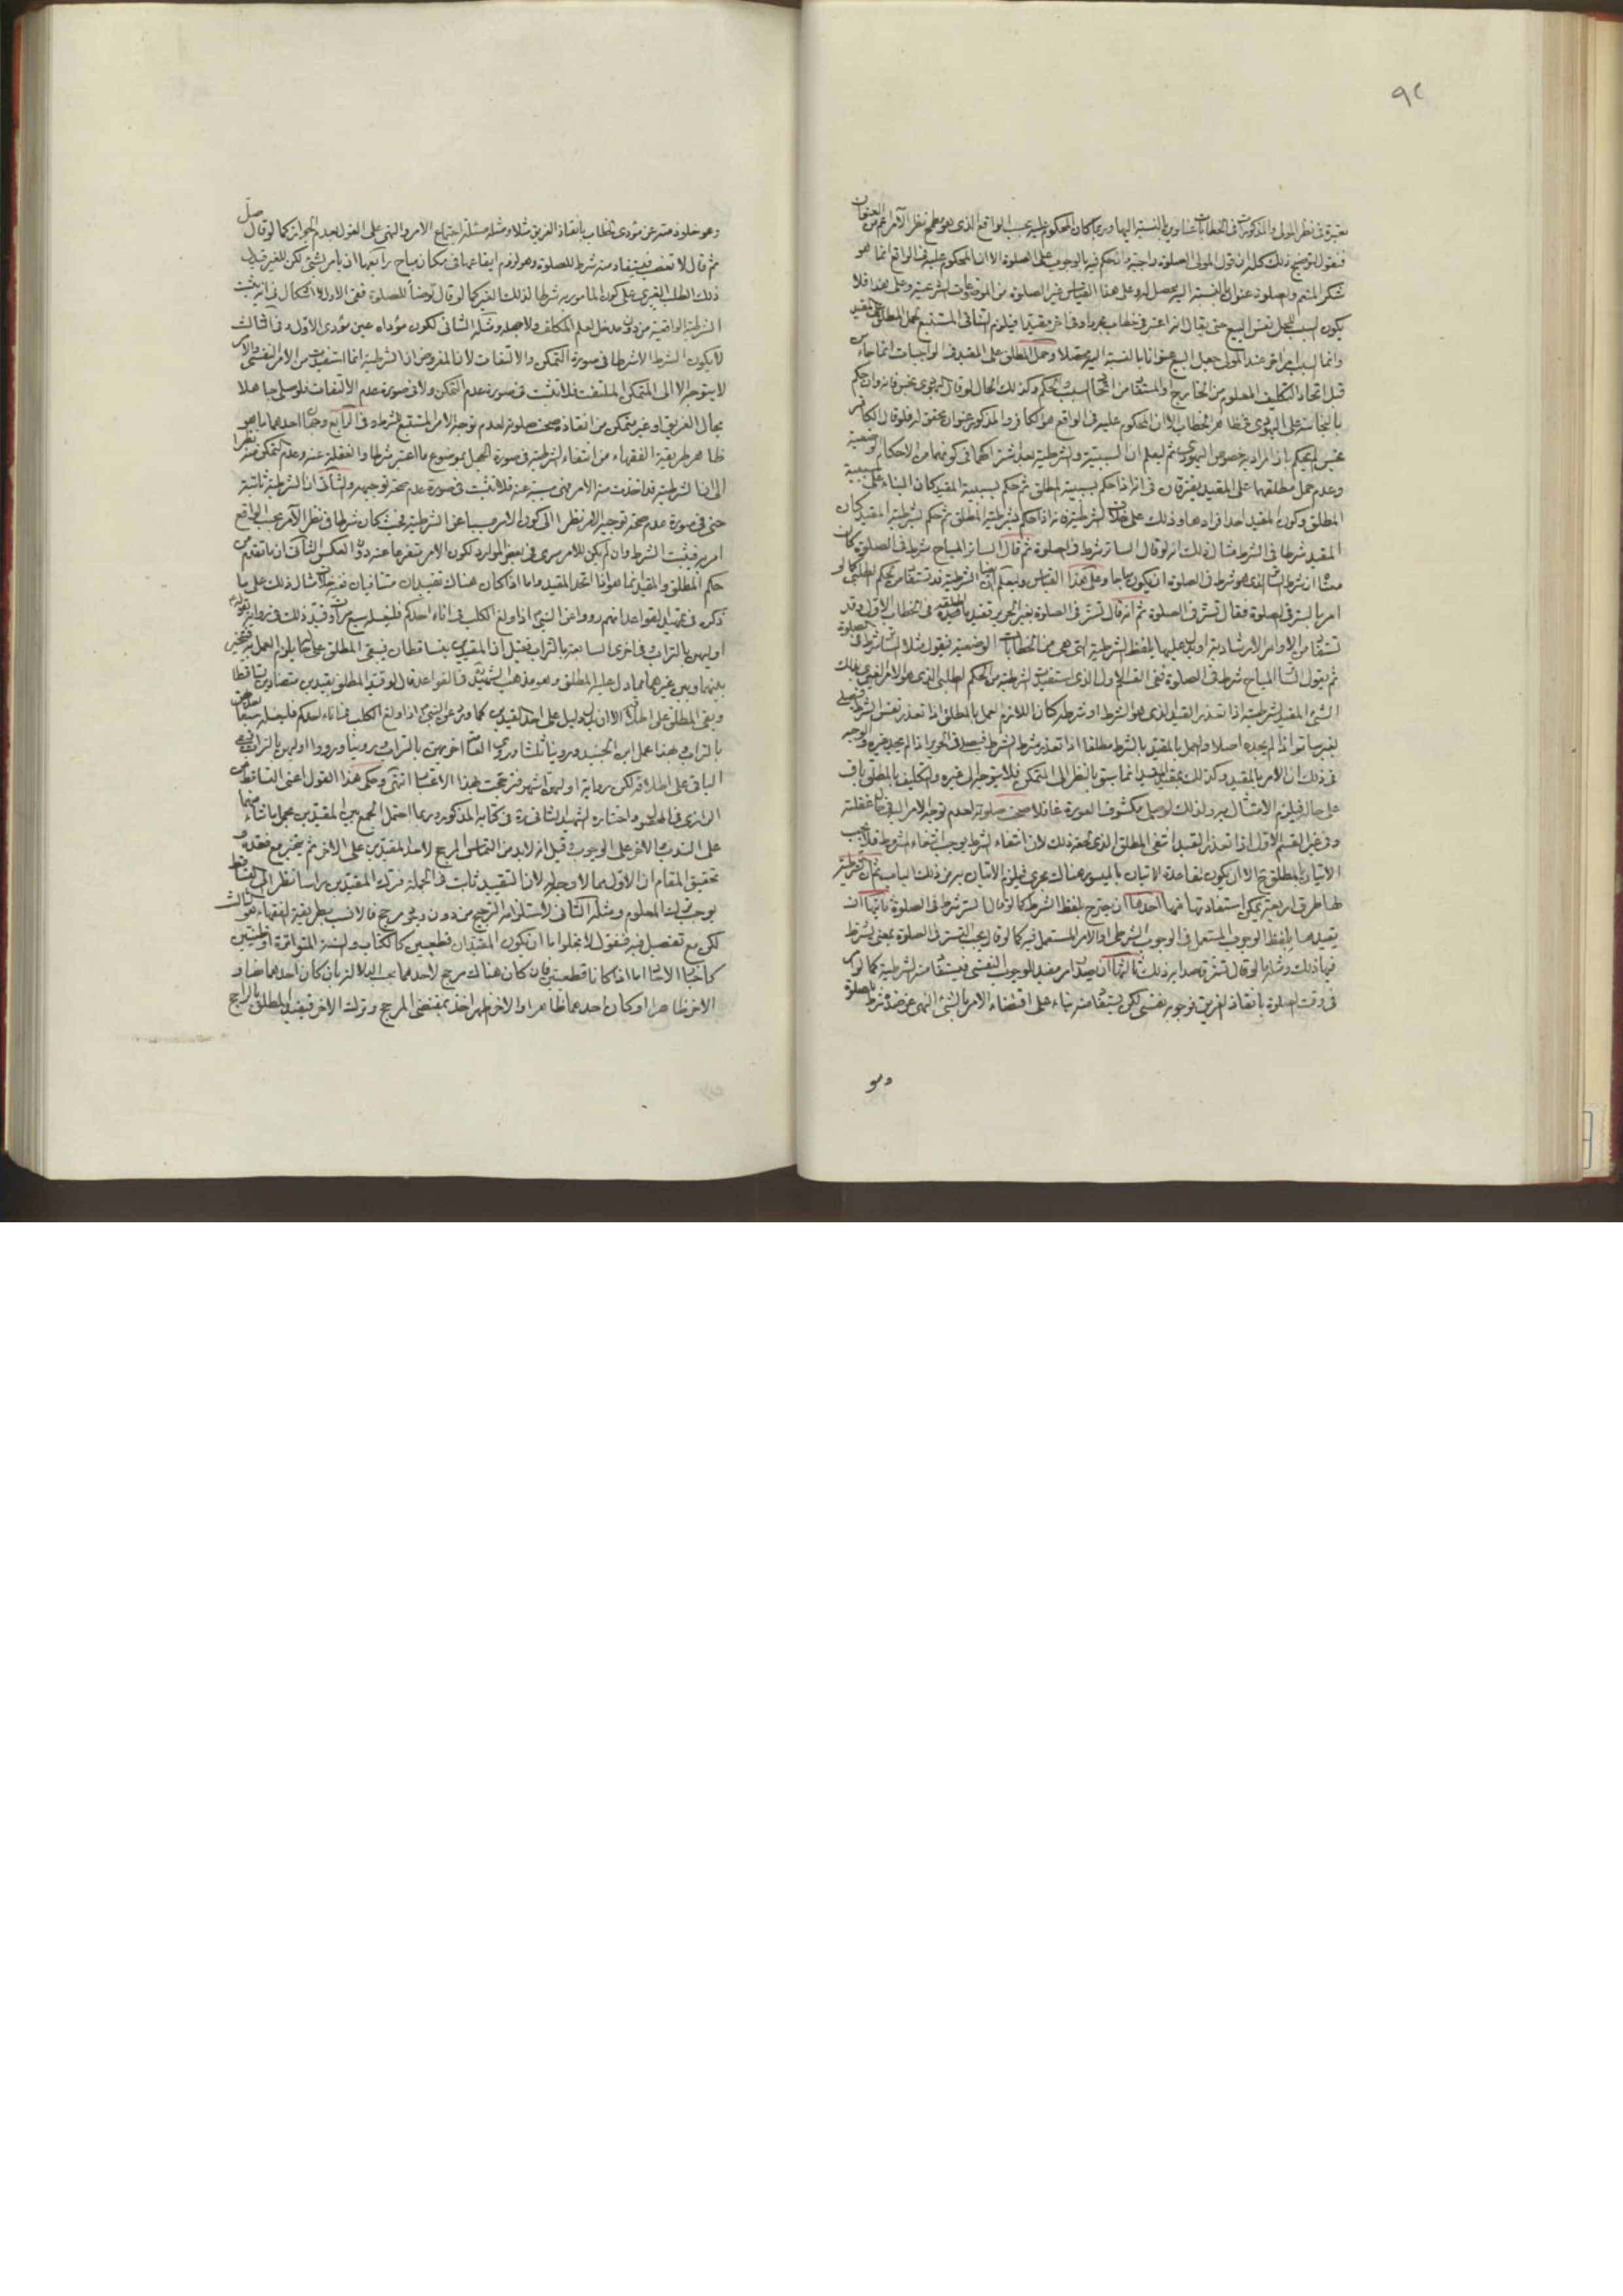 ٩٢
معتبرة في نظر المولى والمذكورات في الخطابات عناوين بالنسبة اليها وربما كان المحكوم عليه بحسب الواقع الذي هو مطمح نظر الآمر اعم من العنوان
فنقول لتوضيح ذلك كله ان قول المولى الصلوة واجبة وان حكم فيه بالوجوب على الصلوة الا ان المحكوم عليه في الواقع انما هو
شكر المنعم والصلوة عنوان بالنسبة اليه يحصل به وعلى هذا القياس غير الصلوة من الموضوعات الشرعية وعلى هذا فلا
يكون السبب للحل نفس البيع حتى يقال انه اعتبر في خطاب مجردا وفي اخر مقيدا فيلزم التنافي المستتبع لحمل المطلق على المقيد
وانما السبب امر اخر عند المولى جعل البيع عنوانا بالنسبة اليه وحمل المطلق على المقيد في الواجبات انما جاء من
قبل اتحاد التكليف المعلوم من الخارج والمستفاد من اتحاد السبب الحكم وكذلك الحال لو قال اليهودي نجس فانه وان حكم
بالنجاسة على اليهودي في ظاهر الخطاب الا ان المحكوم عليه في الواقع هو الكافر والمذكور عنوان تحقق له فلو قال الكافر
نجس لم يحكم بان المراد به خصوص اليهودي ثم ليعلم ان السببية والشرطية بعد اشتراكهما في كونهما من الاحكام الوضعية
وعدم حمل مطلقهما على المقيد يفترقان في انه اذا حكم بسببية المطلق ثم حكم بسببية المقيد كان البناء على سببية
المطلق وكون المقيد احد افرادها وذلك على خلاف الشرطية فانه اذا حكم بشرطية المطلق ثم حكم بشرطية المقيد كان
المقيد شرطا في الشرط مثال ذلك انه لو قال الساتر شرط في الصلوة ثم قال الساتر المباح شرط في الصلوة كان
معناه ان شرط الساتر الذي هو شرط في الصلوة ان يكون مباحا وعلى هذا القياس وليعلم ايضا ان الشرطية قد تستفاد من الحكم الطلبي كما لو
امر بالستر في الصلوة فقال تستر في الصلوة ثم انه قال تستر في الصلوة بغير الحرير تقييد لما اطلقه في الخطاب الاول وقد
تستفاد من الاوامر الارشادية او يدل عليها بلفظ الشرطية التي هي من الخطابات الوضعية فيقول مثلا الساتر شرط في الصلوة
ثم يقول الساتر المباح شرط في الصلوة ففي القسم الاول الذي استفيدت الشرطية من الحكم الطلبي الذي هو الامر الغيري بذلك
الشيء المقيد لشرطيته اذا تعذر القيد الذي هو الشرط او شرطه كان اللازم العمل بالمطلق اذا تعذر نفس الشرط فيصلي
بغير ساتر اذا لم يجده اصلا والعمل بالمقيد بالشرط مطلقا اذا تعذر شرط الشرط فيصلي في الحرير اذا لم يجد غيره والوجه
في ذلك ان الامر بالمقيد وكذلك بقيد القيد انما يبقى بالنظر الى المتمكن فلا يتوجه الى غيره والتكليف بالمطلق باق
على حاله فيلزم الامتثال به ولذلك لو صلى مكشوف العورة غافلا صحت صلوته لعدم توجه الامر اليه في حال غفلته
وفي غير القسم الاول اذا تعذر القيد انتفى المطلق الذي اعتبر ذلك لان انتفاء الشرط يوجب انتفاء المشروط فلا يجب
الاتيان بالمطلق ح الا ان يكون لقاعدة الاتيان بالميسور هناك مجرى فيلزم الاتيان به من ذلك الباب ثم ان الشرطية
لها طرق اربعة يمكن استفادتها منها احدها ان يصرح بلفظ الشرط كما لو قال الستر شرط في الصلوة ثانيها ان
يقيدها بلفظ الوجوب المستعمل في الوجوب الشرطي او الامر المستعمل فيه كما لو قال يجب التستر في الصلوة بمعنى يشترط
فيها ذلك ومثله ما لو قال تستر قاصدا به ذلك ثالثها ان يصدر امر مفيد للوجوب النفسي فيستفاد منه الشرطية كما لو امر
في وقت الصلوة بانقاذ الغريق فوجوبه نفسي لكن يستفاد منه بناء على اقتضاء الامر بالشيء النهي عن ضده شرط للصلوة
وهو
وهو خلو ذمته عن مؤدى خطاب بانقاذ الغريق مثلا ومثله مسئلة اجتماع الامر والنهي على القول بعدم الجواز كما لو قال صل
ثم قال لا تغصب فيستفاد منه شرط للصلوة وهو لزوم ايقاعها في مكان مباح رابعها ان يامر بشيء لكن للغير فيدل
ذلك الطلب الغيري على كون المامور به شرطا لذلك الغير كما لو قال توضأ للصلوة ففي الاول لا اشكال في انه يثبت
الشرطية الواقعية من دون مدخل لعلم المكلف ولا جهله ومثله الثاني لكون مؤداه عين مؤدى الاول وفي الثالث
لا يكون الشرط الا شرطا في صورة التمكن والالتفات لان المفروض ان الشرطية انما استفيدت من الامر النفسي والامر
لا يتوجه الا الى المتمكن الملتفت فلا تثبت في صورة عدم التمكن ولا في صورة عدم الالتفات فلو صلى جاهلا
بحال الغريق او غير متمكن من انقاذه صحت صلوته لعدم توجه الامر المستتبع للشرط وفي الرابع وجهان احدهما ما هو
ظاهر طريقة الفقهاء من انتفاء الشرطية في صورة الجهل بموضوع ما اعتبر شرطا والغفلة عنه وعدم التمكن منه نظرا
الى ان الشرطية قد اخذت من الامر فهي مسببة عنه فلا تثبت في صورة عدم صحة توجيهه والثاني ان الشرطية ثابتة
حتى في صورة عدم صحة توجيه الامر نظرا الى كون الامر مسببا عن الشرطية فحيث كان شرطا في نظر الآمر بحسب الواقع
امر به فيثبت الشرط وان لم يكن للامر مسرى في بعض الموارد لكون الامر متفرعا عنه دون العكس الثاني ان ما تقدم من
حكم المطلق والمقيد انما هو اذا اتحد المقيد واما اذا كان هناك تقييدان متنافيان ففيه خلاف مثال ذلك على ما
ذكره في تمهيد القواعد انهم رووا عن النبي اذا ولغ الكلب في اناء احدكم فليغسله سبع مرات وقيد ذلك في رواية بقوله
اوليهن بالتراب وفي اخرى السابعة بالتراب فقيل ان المقيدين يتساقطان فيبقى المطلق على حاله يلزم العمل به فيتخير
بينهما وبين غيرهما مما دل عليه المطلق وهو مذهب الشهيد في القواعد قال لو قيد المطلق بقيدين متضادين تساقطا
وبقي المطلق على اطلاقه الا ان يدل دليل على احد القيدين كما ورد عن النبي اذا ولغ الكلب في اناء احدكم فليغسله سبعا احديهن
بالتراب وبهذا عمل ابن الجنيد وروينا ثلثا وروى العامة اخريهن بالتراب وروينا ورووا اوليهن بالتراب فبقي
الباقي على اطلاقه لكن رواية اوليهن اشهر فترجحت بهذا الاعتبار انتهى وحكى هذا القول اعني التساقط عن
الرازي في المحصول واختاره الشهيد الثاني ره في كتابه المذكور وربما احتمل الجمع بين المقيدين بحمل ما شاء منهما
على الندب والاخر على الوجوب وقيل انه لا بد من التماس المرجح لاحد المقيدين على الاخر ثم يتخير مع فقده و
تحقيق المقام ان الاول مما لا وجه له لان التقييد ثابت في الجملة فترك المقيدين راسا نظرا الى التساقط
يوجب ترك المعلوم ومثله الثاني لاستلزامه الترجيح من دون مرجح فالانسب بطريقة الفقهاء هو الثالث
لكن مع تفصيل فيه فنقول لا يخلوا اما ان يكون المقيدان قطعيين كالكتاب والسنة المتواترة او ظنيين
كاخبار الاحاد اما اذا كانا قطعيين فان كان هناك مرجح لاحدهما بحسب الدلالة بان كان احدهما نصا و
الاخر ظاهرا او كان احدهما ظاهرا والاخر اظهر اخذ بمقتضى المرجح وترك الاخر فيقيد المطلق بالراجح